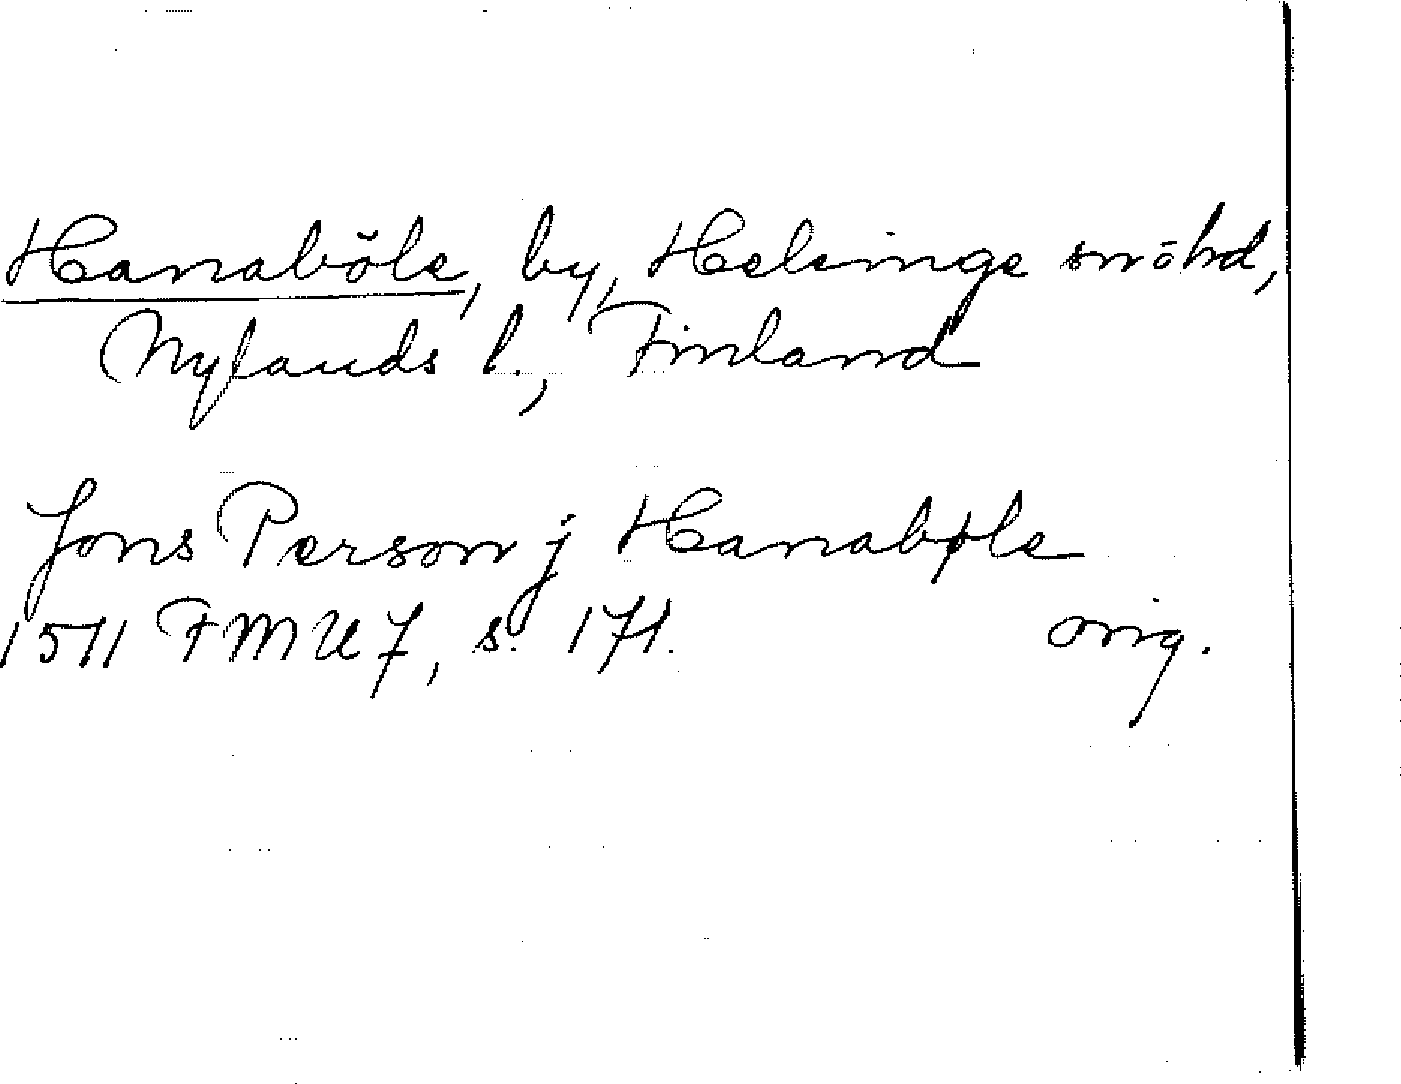 Hanaböle, by, Helsinge snöhd,
Nylands l., Finland
Jons Person j Hanabøle
1511 FMU 7, s. 171.
orig.